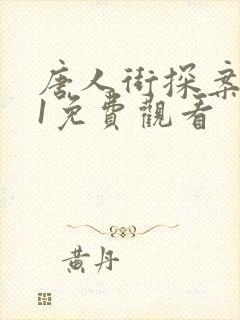 唐人街探案
1免費觀看
黃丹